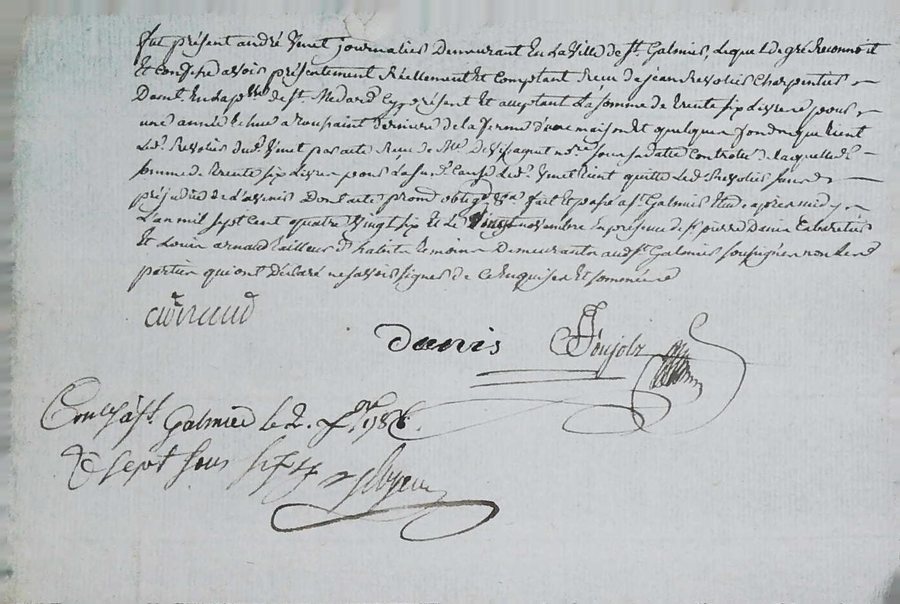 fut présent andré Vinet journalier Demeurant En la Ville de St. Galmier, Lequel de gré Reconnoit
Et Confesse avoir présentement Réellement Et Comptant Reçu de jean Revolier Charpentier
Demt. En la psse. de St. Medard Cy présent Et acceptant La somme de trente six Livres pour
une année Echue a toussaint derniere de la ferme d'une maison Et quelques fonds que tient
Led. Revolier dud. Vinet par acte Reçu de Me. not.re sous sa datte Controlé de laquelle
somme de trente six Livres pour La susd. Cause Led. Vinet tient quitte Led. Revolier sans
préjudice de L'avenir Dont acte promd. oblig. fait Et passé a St. Galmier Etude apres midy
L'an mil sept Cent quatre Vingt six Et Le Vingt novembre En présence de Sr. pierre Danis Cabaretier
Et Louis arnaud tailleur d'habits Temoins Demeurants aud. St. Galmier soussignés non Les
parties qui ont Déclaré ne savoir signer de Ce Enquises Et sommées
arnaud
Danis Ponjols
Con.lé à St. Galmier le 2. Xbre 1786.
R sept sous six d